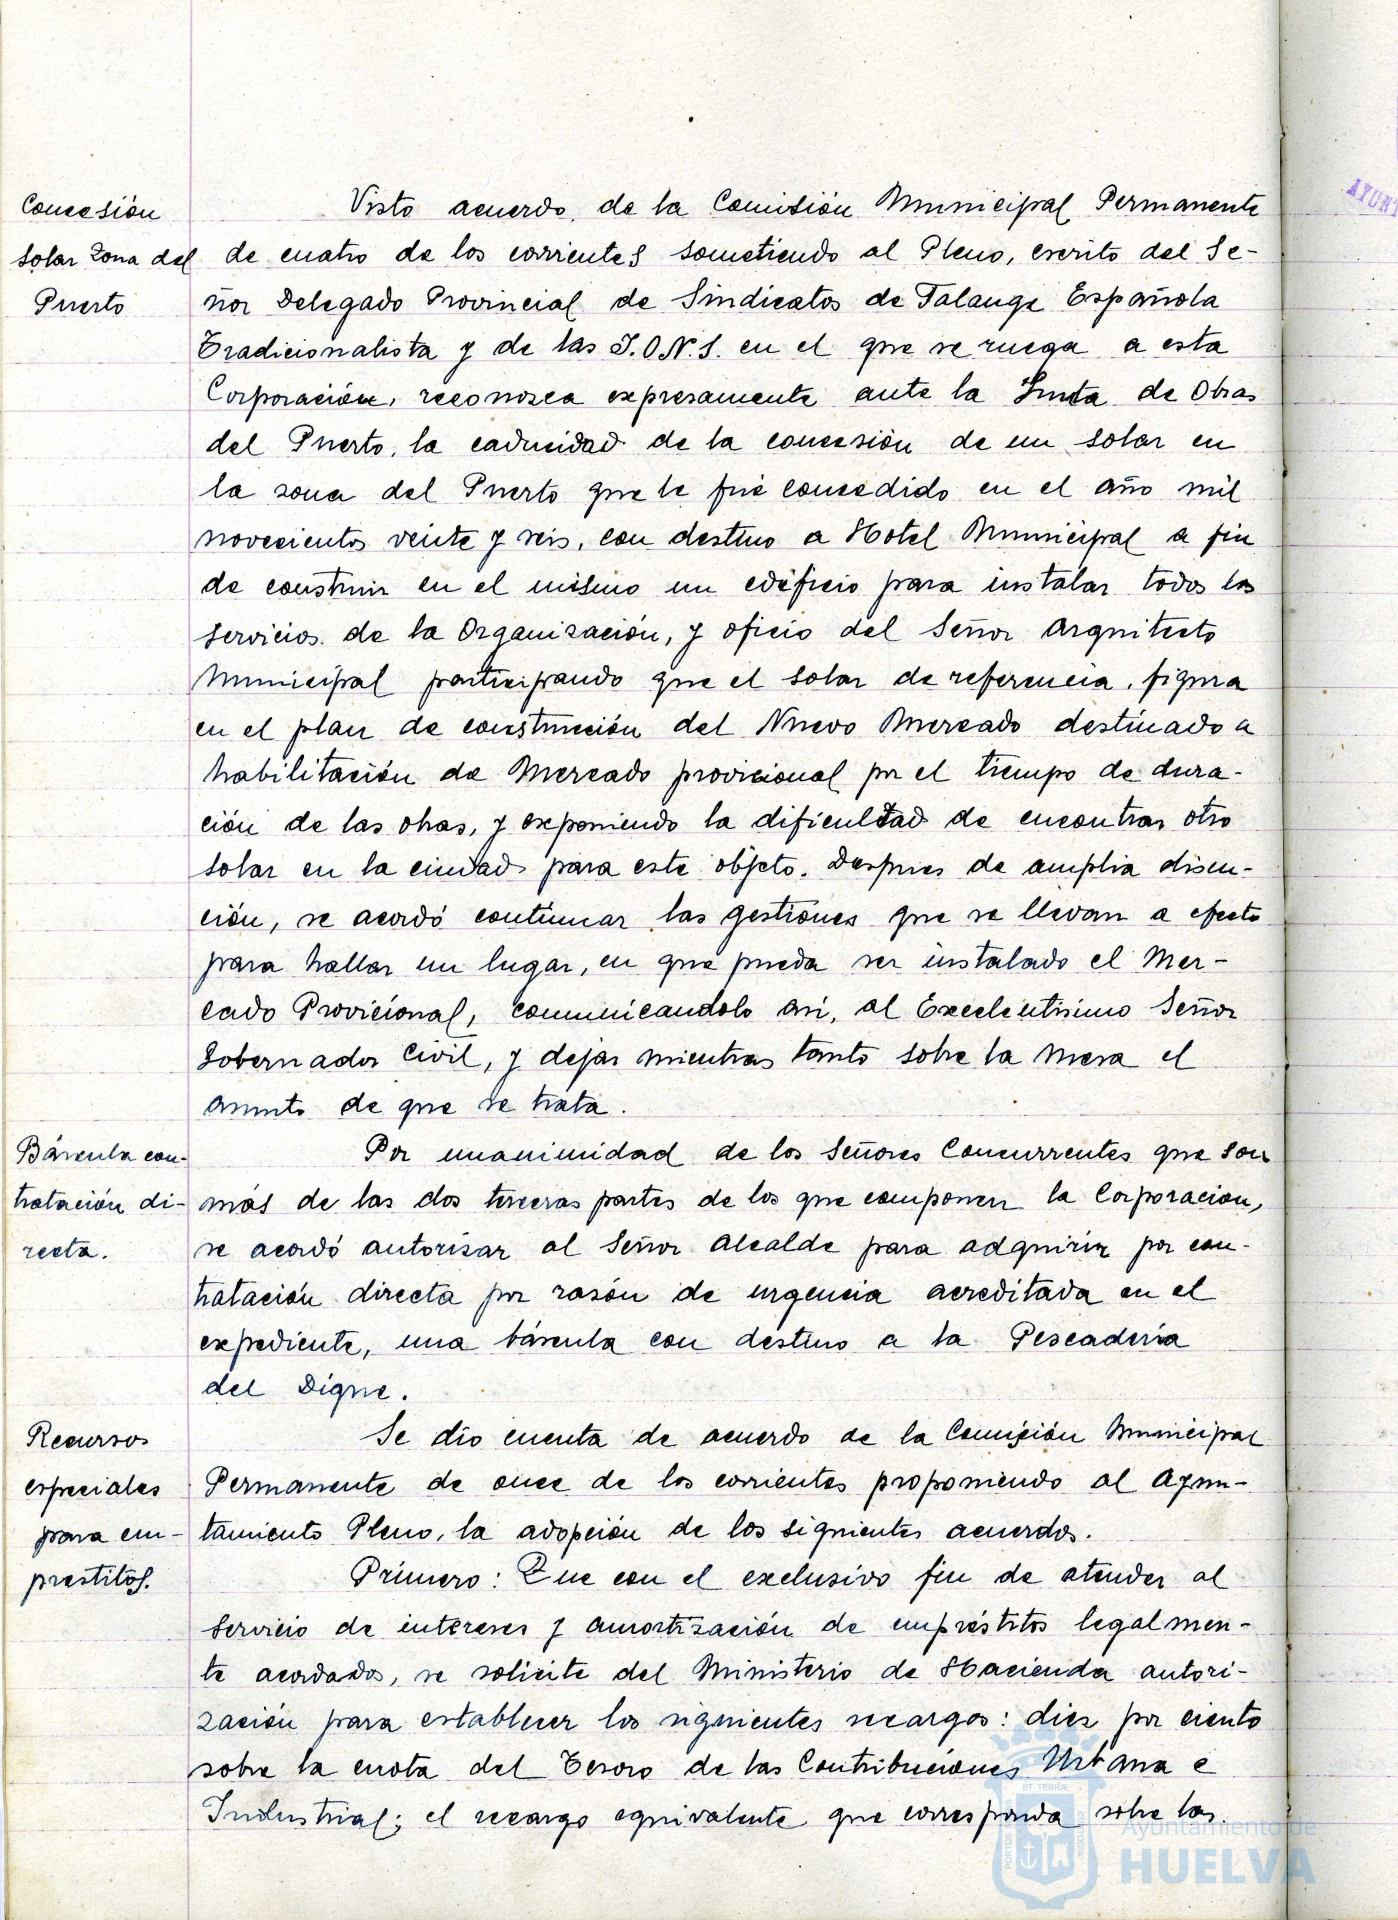 Concesión
solar Zona del
Puerto
Visto acuerdo de la Comisión Municipal Permanente
de cuatro de los corrientes sometiendo al Pleno, escrito del Se-
ñor Delegado Provincial de Sindicatos de Falange Española
Tradicionalista y de las J.O.N.S. en el que se ruega a esta
Corporación, reconozca expresamente ante la Junta de Obras
del Puerto, la caducidad de la concesión de un solar en
la zona del Puerto que le fué concedido en el año mil
novecientos veinte y seis, con destino a Hotel Municipal a fin
de construir en el mismo un edificio para instalar todos los
servicios de la Organización, y oficio del Señor Arquitecto
Municipal participando que el solar de referencia, figura
en el plan de construcción del Nuevo Mercado destinado a
habilitación de Mercado provicional por el tiempo de dura-
ción de las obras, y exponiendo la dificultad de encontrar otro
solar en la ciudad para este objeto. Despues de amplia discu-
ción, se acordó continuar las gestiones que se llevan a efecto
para hallar un lugar, en que pueda ser instalado el Mer-
cado Provicional, comunicandolo asi, al Excelentisimo Señor
Gobernador Civil, y dejar mientras tanto sobre la Mesa el
asunto de que se trata.
Báscula con-
tratación di-
recta.
Por unanimidad de los Señores Concurrentes que son
más de las dos terceras partes de los que componen la Corporación,
se acordó autorizar al Señor Alcalde para adquirir por con-
tratación directa por razón de urgencia acreditada en el
expediente, una báscula con destino a la Pescadería
del Dique.
Recursos
especiales
para em-
prestitos.
Se dio cuenta de acuerdo de la Comisión Municipal
Permanente de once de los corrientes proponiendo al Ayun-
tamiento Pleno, la adopción de los siguientes acuerdos.
Primero: Que con el exclusivo fin de atender al
servicio de intereses y amortización de empréstitos legalmen-
te acordados, se solicite del Ministerio de Hacienda autori-
zación para establecer los siguientes recargos: diez por ciento
sobre la cuota del Tesoro de las Contribuciones Urbana e
Industrial; el recargo equivalente que corresponda sobre las
Ayuntamiento de
HUELVA